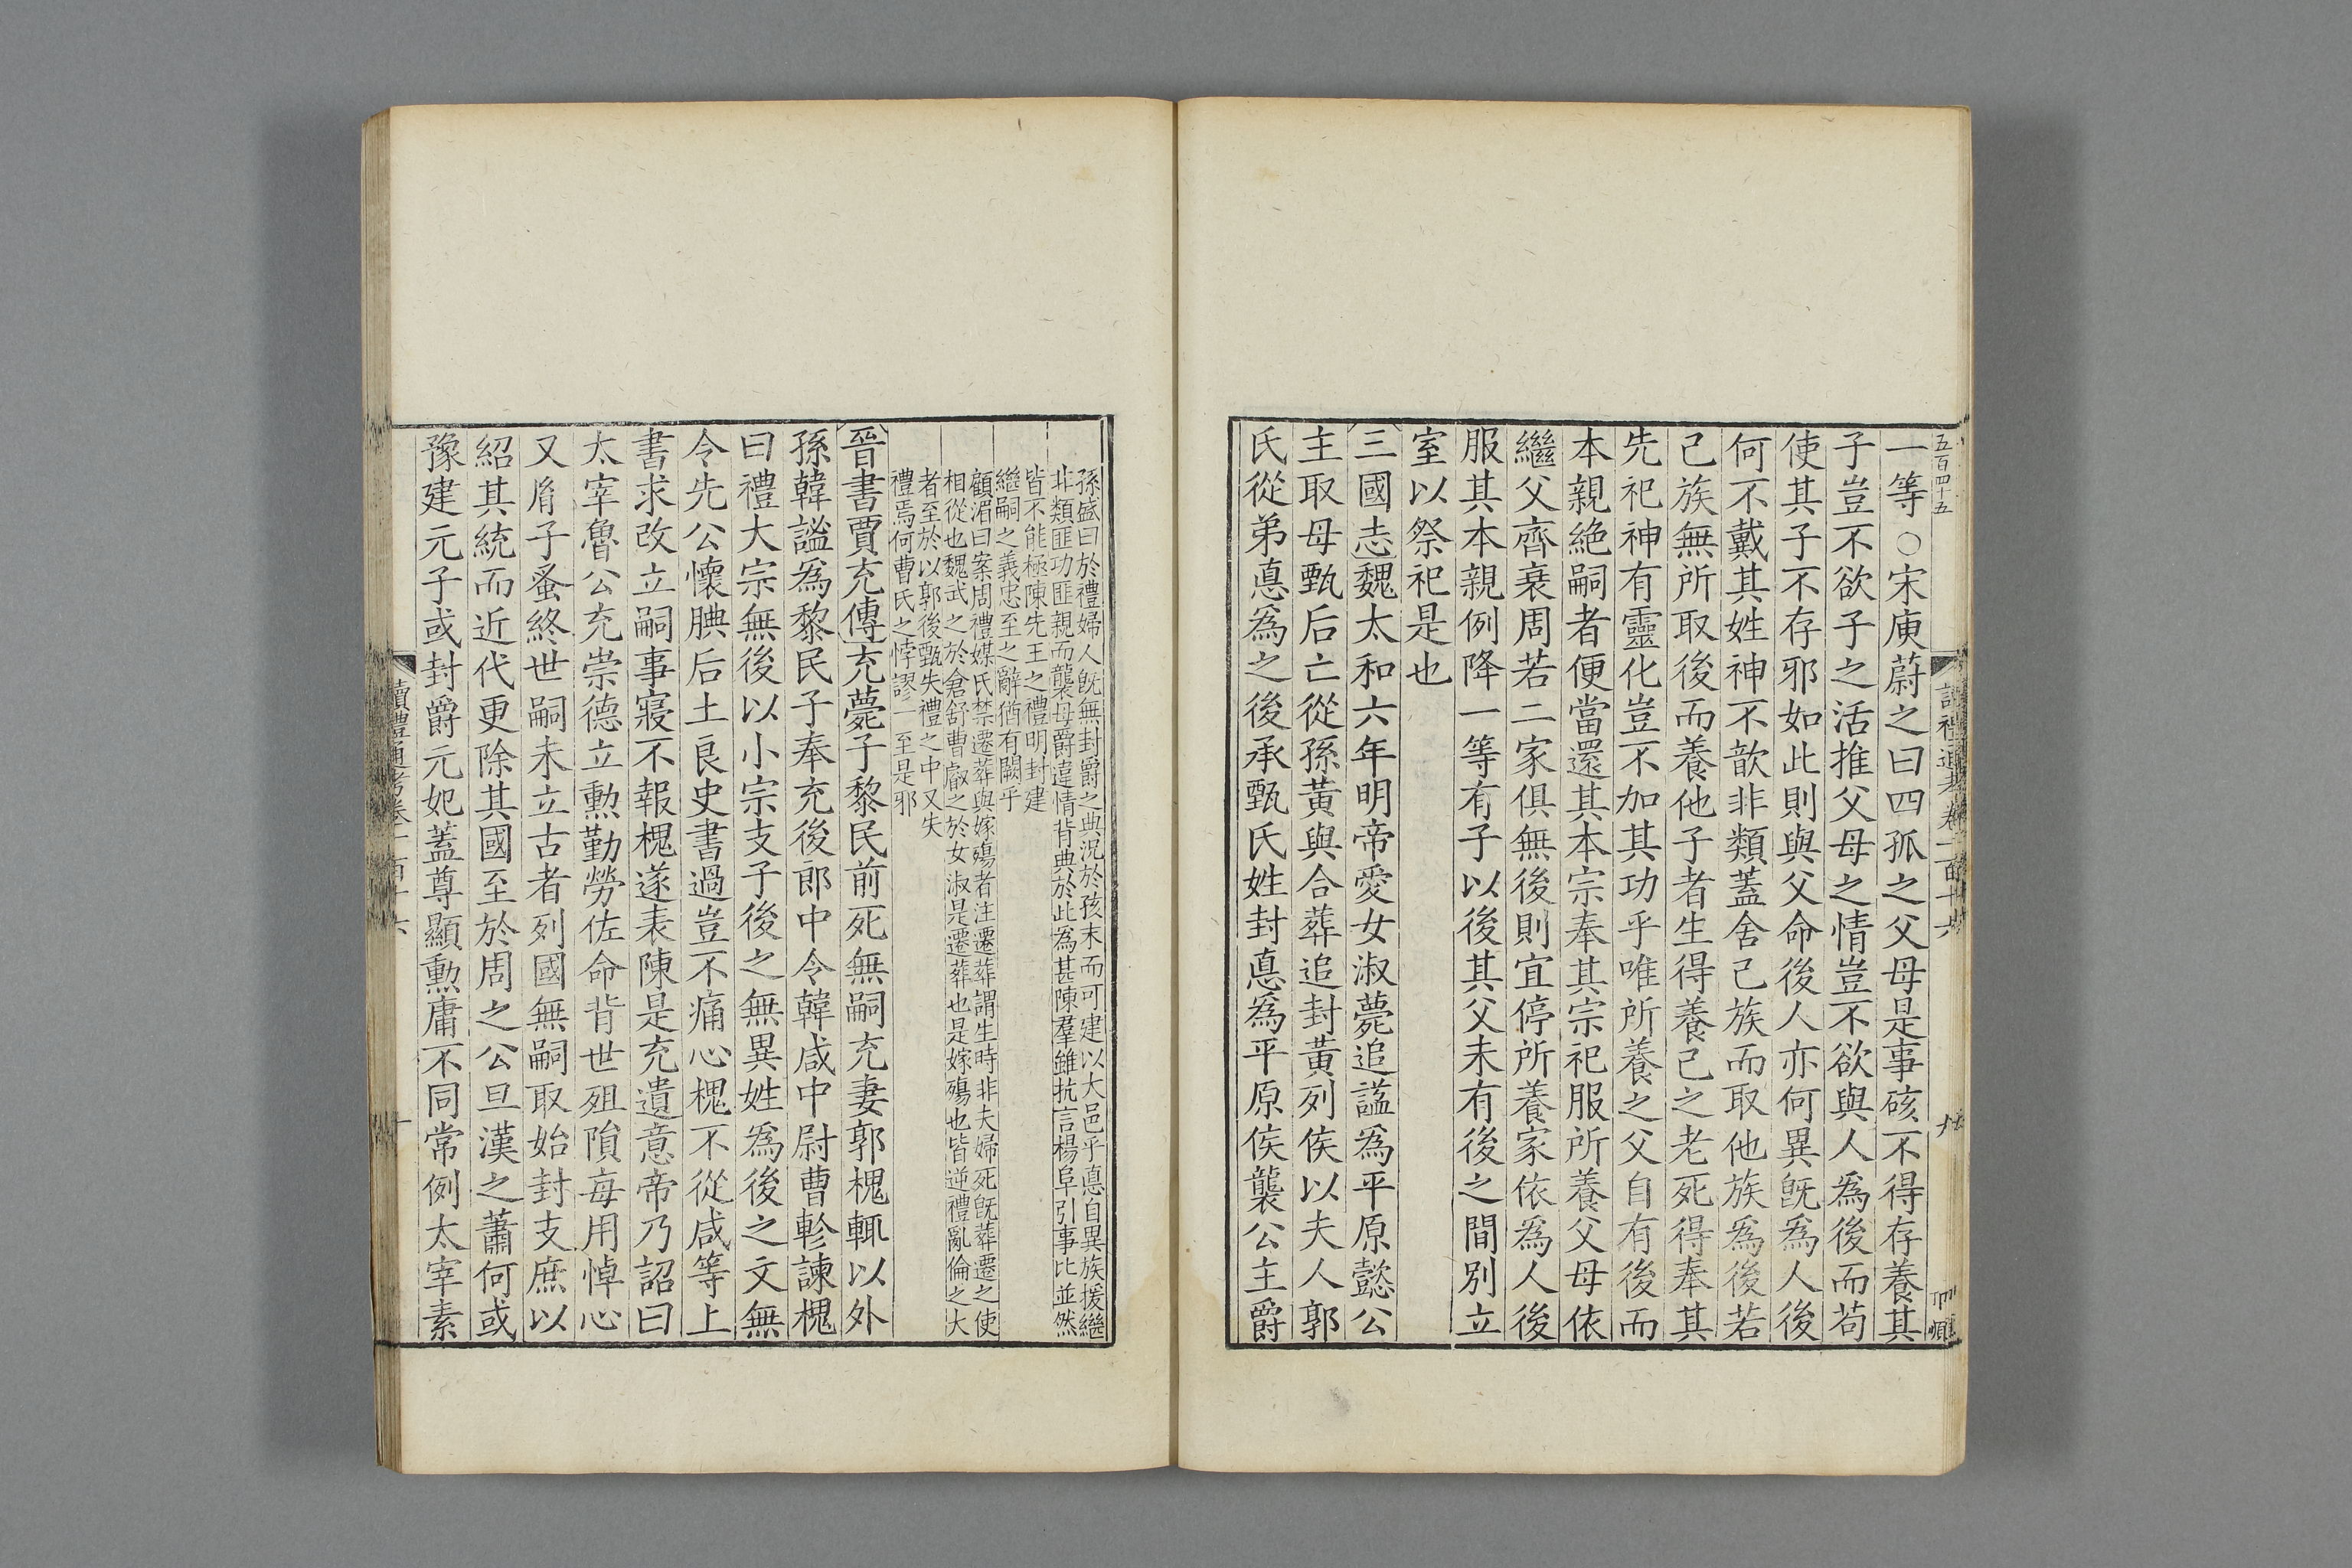 五百四十五
一等○宋庾蔚之曰四孤之父母是事硋不得存養其
子豈不欲子之活推父母之情豈不欲與人爲後而苟
使其子不存邪如此則與父命後人亦何異旣爲人後
何不戴其姓神不歆非類蓋舍己族而取他族爲後若
己族無所取後而養他子者生得養己之老死得奉其
先祀神有靈化豈不加其功乎唯所養之父自有後而
本親絶嗣者便當還其本宗奉其宗祀服所養父母依
繼父齊衰周若二家俱無後則宜停所養家依爲人後
服其本親例降一等有子以後其父未有後之間别立
室以祭祀是也
三國志魏太和六年明帝愛女淑薨追謚爲平原懿公
主取母甄后亡從孫黄與合葬追封黄列侯以夫人郭
氏從弟悳爲之後承甄氏姓封悳爲平原侯襲公主爵
孫盛曰於禮婦人旣無封爵之典況於孩末而可建以大邑乎悳自異族援繼
非類匪功匪親而襲母爵違情背典於此爲甚陳羣雖抗言楊阜引事比並然
皆不能極陳先王之禮明封建
繼嗣之義忠至之辭猶有闕乎
顧湄曰案周禮媒氏禁遷葬與嫁殤者注遷葬謂生時非夫婦死旣葬遷之使
相從也魏武之於倉舒曹叡之於女淑是遷葬也是嫁殤也皆逆禮亂倫之大
者至於以郭後甄失禮之中又失
禮焉何曹氏之悖謬一至是邪
晉書賈充傳充薨子黎民前死無嗣充妻郭槐輒以外
孫韓謐爲黎民子奉充後郎中令韓咸中尉曹軫諫槐
曰禮大宗無後以小宗支子後之無異姓爲後之文無
令先公懷腆后土良史書過豈不痛心槐不從咸等上
書求改立嗣事寢不報槐遂表陳是充遺意帝乃詔曰
太宰魯公充崇德立勲勤勞佐命背世殂隕每用悼心
又胤子蚤終世嗣未立古者列國無嗣取始封支庶以
紹其統而近代更除其國至於周之公旦漢之蕭何或
豫建元子或封爵元妃蓋尊顯勲庸不同常例太宰素
讀禮通考卷一百十六